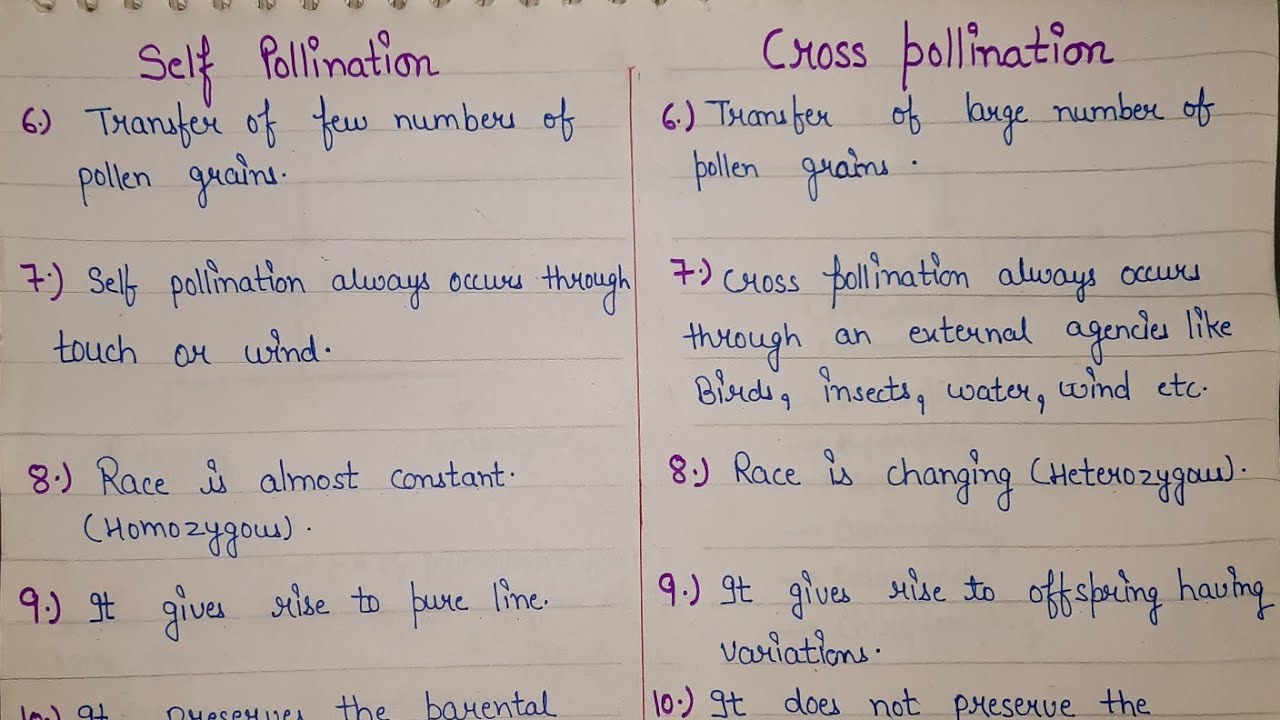 Self Pollination
6.) Transfer of few numbers of
pollen grains.
7.) Self pollination always occurs through
touch or wind.
8.) Race is almost constant.
(Homozygous).
9.) It gives rise to pure line.
10.) It preserves the parental
Cross pollination
6.) Transfer of large number of
pollen grains.
7.) Cross pollination always occurs
through an external agencies like
Birds, insects, water, wind etc.
8.) Race is changing (Heterozygous).
9.) It gives rise to offspring having
variations.
10.) It does not preserve the